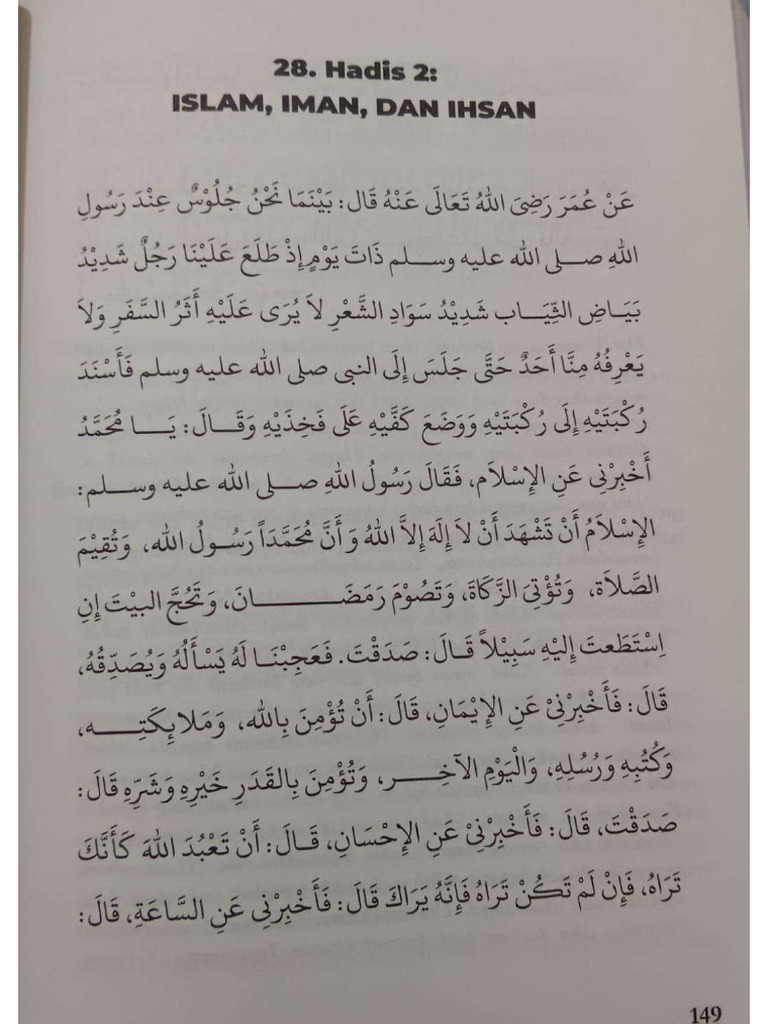 28. Hadis 2:
ISLAM, IMAN, DAN IHSAN
عَنْ عُمَرَ رَضِيَ اللهُ تَعَالَى عَنْهُ قَالَ: بَيْنَمَا نَحْنُ جُلُوْسٌ عِنْدَ رَسُولِ
اللهِ صلى الله عليه وسلم ذَاتَ يَوْمٍ إِذْ طَلَعَ عَلَيْنَا رَجُلٌ شَدِيْدُ
بَيَاضِ الثِّيَابِ شَدِيْدُ سَوَادِ الشَّعْرِ لاَ يُرَى عَلَيْهِ أَثَرُ السَّفَرِ وَلاَ
يَعْرِفُهُ مِنَّا أَحَدٌ حَتَّى جَلَسَ إِلَى النبى صلى الله عليه وسلم فَأَسْنَدَ
رُكْبَتَيْهِ إِلَى رُكْبَتَيْهِ وَوَضَعَ كَفَّيْهِ عَلَى فَخِذَيْهِ وَقَالَ: يَا مُحَمَّدُ
أَخْبِرْنِى عَنِ الإِسْلاَمِ، فَقَالَ رَسُولُ اللهِ صلى الله عليه وسلم:
الإِسْلاَمُ أَنْ تَشْهَدَ أَنْ لاَ إِلَهَ إِلاَّ اللهُ وَأَنَّ مُحَمَّدَاً رَسُولُ الله، وَتُقِيْمَ
الصَّلاَة، وَتُؤْتِىَ الزَّكَاةَ، وَتَصُوْمَ رَمَضَانَ، وَتَحُجَّ البَيْتَ إِنِ
اِسْتَطَعتَ إِليْهِ سَبِيْلاً قَالَ: صَدَقْتَ. فَعَجِبْنَا لَهُ يَسْأَلُهُ وَيُصَدِّقُهُ،
قَالَ: فَأَخْبِرْنِيْ عَنِ الإِيْمَانِ، قَالَ: أَنْ تُؤْمِنَ بِالله، وَمَلاَئِكَتِه،
وَكُتُبِهِ وَرُسُلِهِ، وَالْيَوْمِ الآخِرِ، وَتُؤْمِنَ بِالقَدَرِ خَيْرِهِ وَشَرِّهِ قَالَ:
صَدَقْتَ، قَالَ: فَأَخْبِرْنِيْ عَنِ الإِحْسَانِ، قَالَ: أَنْ تَعْبُدَ اللهَ كَأَنَّكَ
تَرَاهُ، فَإِنْ لَمْ تَكُنْ تَرَاهُ فَإِنَّهُ يَرَاكَ قَالَ: فَأَخْبِرْنِي عَنِ السَّاعَةِ، قَالَ:
149